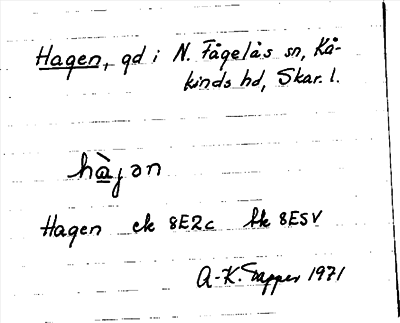 Hagen, gd i N. Fågelås sn, Kå-
kinds hd, Skar. l.
hàjən
Hagen ek 8E2c bk 8E5v
A-K. Tapper 1971